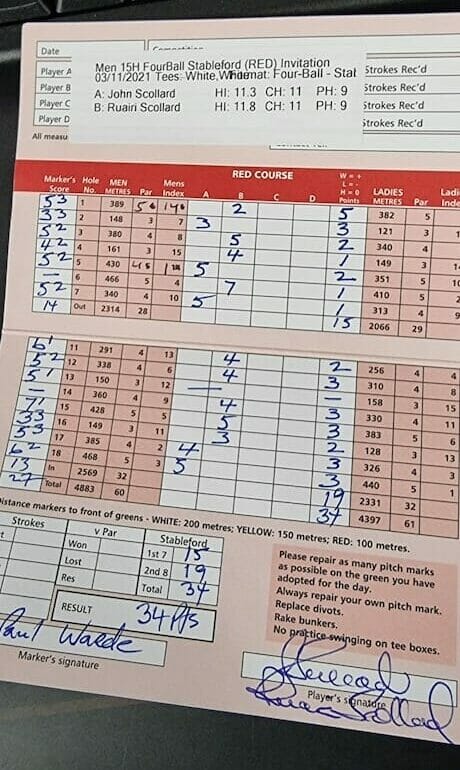 Date
Player A
Player B
Player C
Player D
All measu
Men 15H FourBall Stableford (RED) Invitation
03/11/2021 Tees: White,White
A: John Scollard HI: 11.3 CH: 11 PH: 9
B: Ruairi Scollard HI: 11.8 CH: 11 PH: 9
Strokes Rec'd
Strokes Rec'd
Strokes Rec'd
Strokes Rec'd
RED COURSE
Marker's Score Hole No. MEN METRES Par Mens Index A B C D W = + L = - H = 0 Points LADIES METRES Par
53 1 389 2 5 382 5
33 2 148 3 7 3 3 121 3
52 3 380 4 8 5 2 340 4
42 4 161 3 15 4 1 149 3
52 5 430 5 2 351 5
— 6 466 5 4 7 1 410 5
52 7 340 4 10 5 1 313 4
14 Out 2314 28 15 2066 29
61 11 291 4 13 4 2 256 4 4
52 12 338 4 6 4 3 310 4 8
51 13 150 3 12 — — 158 3 15
— 14 360 4 9 4 3 330 4 11
71 15 428 5 5 5 3 383 5 6
33 16 149 3 11 3 2 128 3 13
53 17 385 4 2 4 3 326 4 3
62 18 468 5 3 5 3 440 5 1
13 In 2569 32 19 2331 32
27 Total 4883 60 34 4397 61
Distance markers to front of greens - WHITE: 200 metres; YELLOW: 150 metres; RED: 100 metres.
Strokes
v Par
Won
Lost
Res
Stableford
1st 7 15
2nd 8 19
Total 34
RESULT 34 Pts
Please repair as many pitch marks
as possible on the green you have
adopted for the day.
Always repair your own pitch mark.
Replace divots.
Rake bunkers.
No practice swinging on tee boxes.
Paul Warde
Marker's signature
Player's signature
Ruairi Scollard